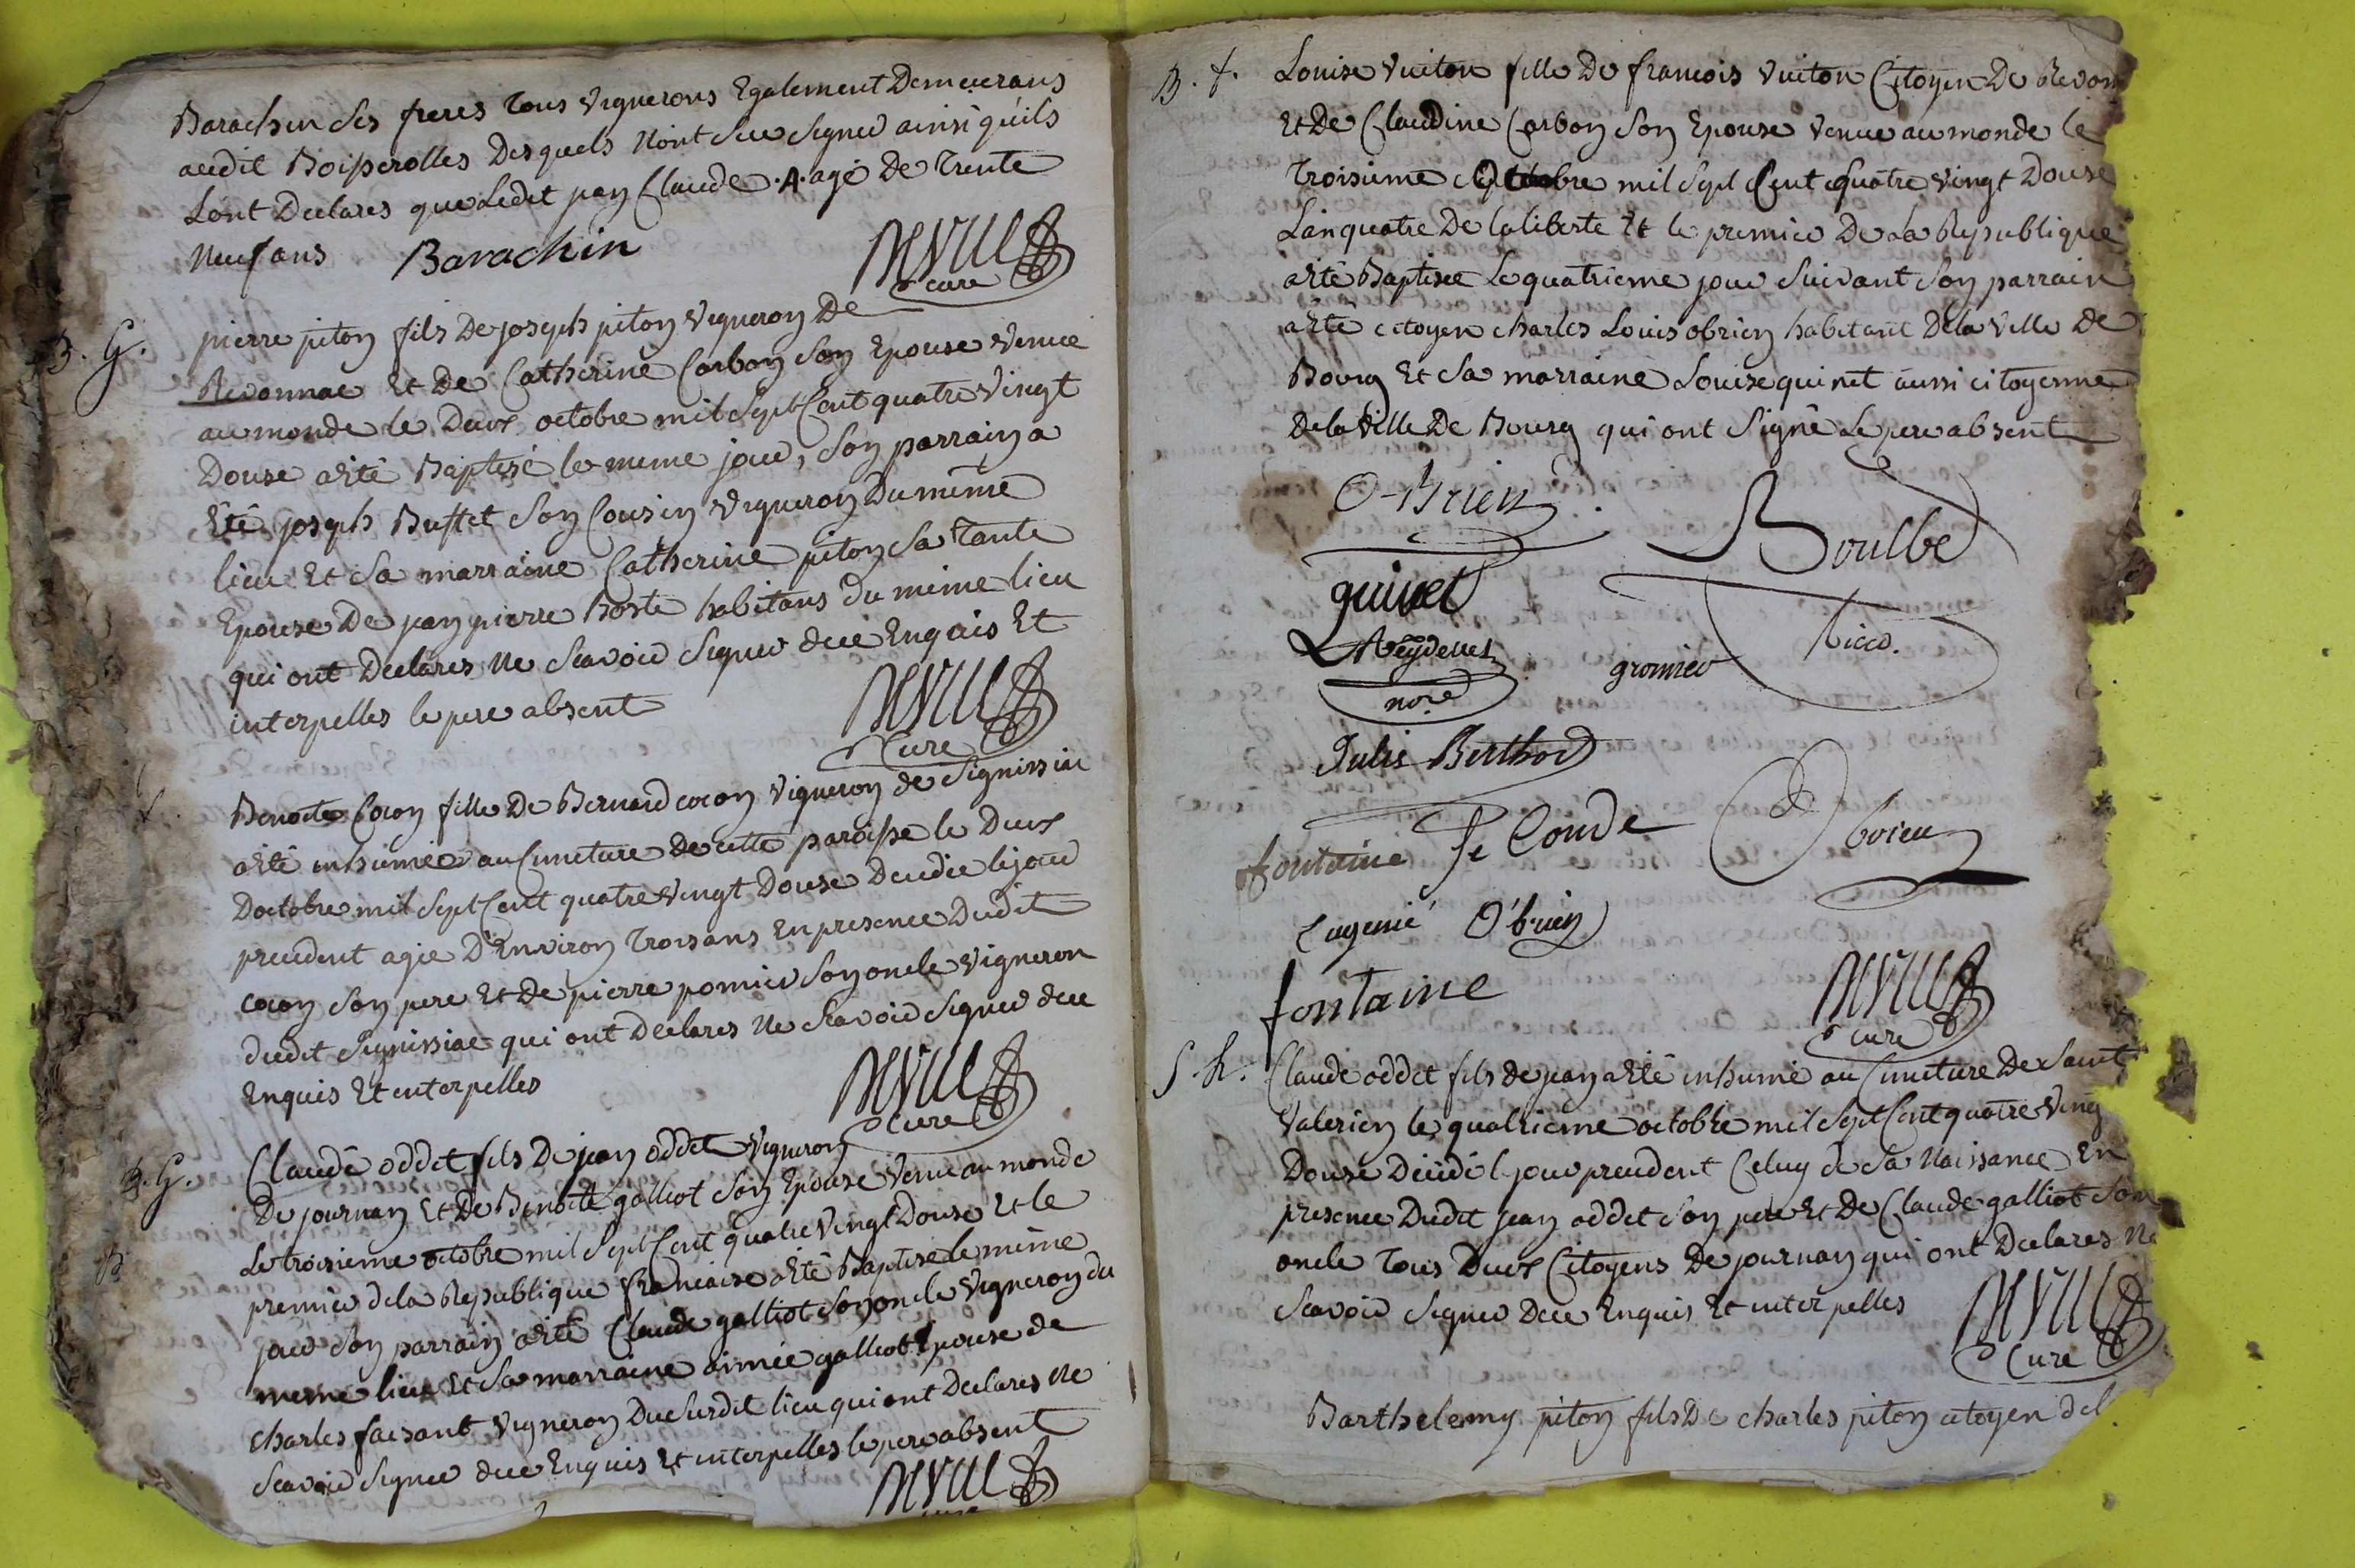 Barachin ses freres tous vignerons Egalement Demeurans
audit Boisserolles Desquels Nont sceu signer ainsi qu'ils
Lont Declares que Ledit jean Claude .A. agé De Trente
Neuf ans Barachin
curé
B. G.
pierre piton fils De joseph piton vigneron De
Revonnac Et De Catherine Carbon son Epouse venue
au monde le Deux octobre mil sept Cent quatre vingt
Douse a Eté Baptisé le meme jour, son parrain a
Eté joseph Buffet son Cousin vigneron Du même
lieu Et sa marraine Catherine piton sa Tante
Epouse De jean pierre hoste habitans du meme lieu
qui ont Declares Ne scavoir signer de ce Enquis Et
interpelles le pere absent
Curé
Benoite Cocon fille De Bernard cocon vigneron de signissiac
a Eté inhumée au Cimeture de cette paroisse le Deux
Doctobre mil sept Cent quatre vingt Douse Decedée le jour
precedent agée D'Environ Trois ans En presence Dudit
cocon son pere Et De pierre pomier son oncle vigneron
dudit signissiac qui ont Declares Ne scavoir signer de ce
Enquis Et interpelles
Curé
B. G.
Claude oddet fils De jean oddet vigneron
De journan Et De Benoite galliot son Epouse venu au monde
Le troisieme octobre mil sept Cent quatre vingt Douse Et le
premier de la Republique francaise a Eté Baptisé le même
jour son parrain a Eté Claude galliot son oncle vigneron du
meme lieu Et sa marraine aimée galliot Epouse de
Charles faisant vigneron Du susdit lieu qui ont Declares Ne
scavoir signer de ce Enquis Et interpelles le pere absent
B. f.
Louise vuiton fille De francois vuiton Citoyen De Revon
Et De Claudine Carbon son Epouse venue au monde le
Troisieme Octobre mil sept Cent Quatre vingt Douse
Lan quatre De la liberte Et le premier De La Republique
a Eté Baptisée Le quatrieme jour suivant son parrain
a Eté citoyen charles Louis obrien habitant De la ville De
Bourg Et sa marraine Louise quinet aussi citoyenne
De la ville De Bourg qui ont signé Le pere absent
O-Brien
Boulbé
quinet
gromier
nore
Julie Berthod
fontaine Le Conde Obrien
Eugenie O'brien
fontaine
curé
S. h.
Claude oddet fils de jean a Eté inhumé au Cimeture De saint
valerien le quatrieme octobre mil sept Cent quatre ving
Douse Decidé le jour precedent Celuy de sa Naissance En
presence Dudit jean oddet son pere Et De Claude galliot son
oncle Tous Deux Citoyens De journan qui ont Declares Ne
scavoir signer De ce Enquis Et interpelles
Curé
Barthelemy piton fils De charles piton citoyen de